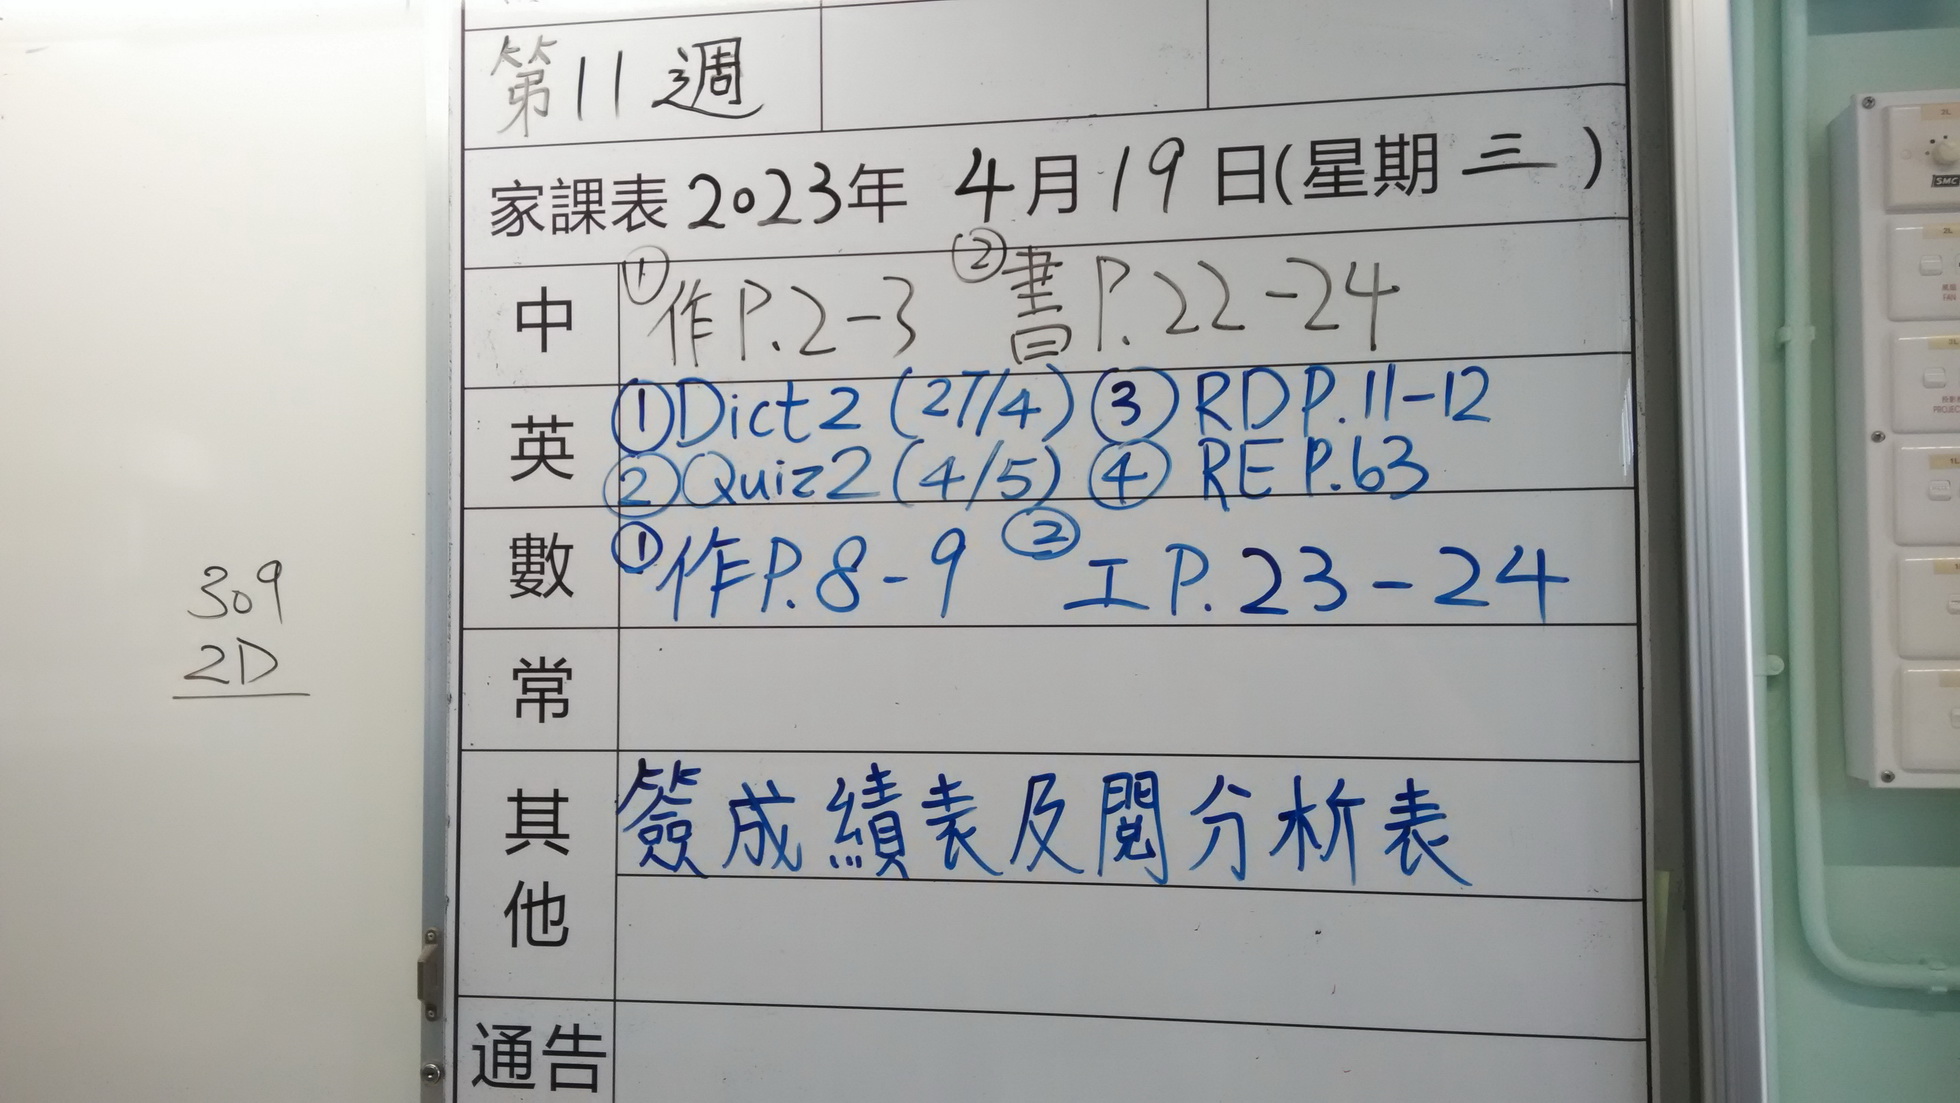 第11週
家課表2023年 4月19日(星期三)
中 ①作P.2-3 ②書P.22-24
英 ①Dict2 (27/4) ③RD P.11-12
②Quiz2 (4/5) ④RE P.63
數 ①作P.8-9 ②工P.23-24
常
其他 簽成績表及閱分析表
通告
309
2D
SMC
FAN